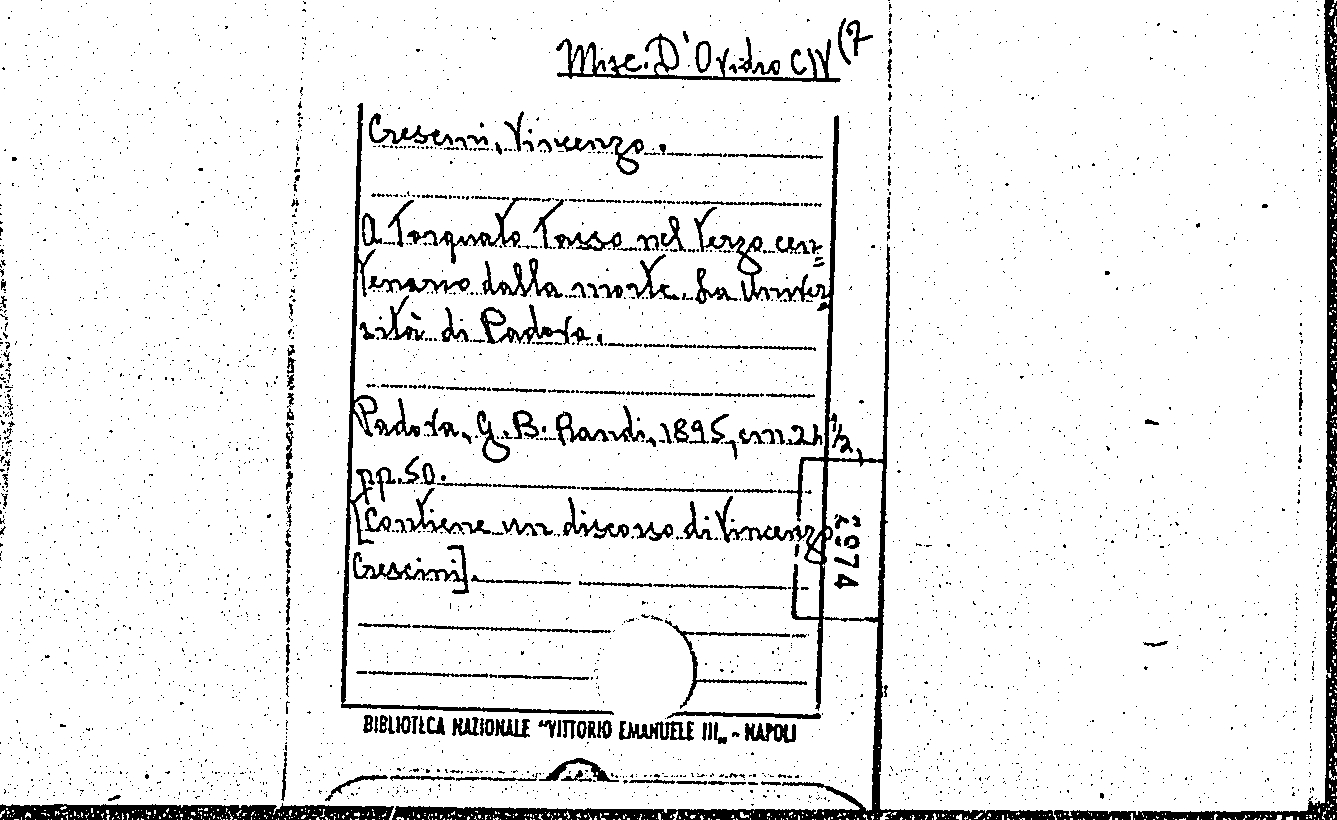 Misc. D'Ovidio CIV (7
Crescini, Vincenzo.
A Torquato Tasso nel terzo cen=
tenario dalla morte. La Univer=
sità di Padova.
Padova, G. B. Randi, 1895, cm. 24 1/2,
pp. 50.
[Contiene un discorso di Vincenzo
Crescini].
2974
BIBLIOTECA NAZIONALE "VITTORIO EMANUELE III„ - NAPOLI